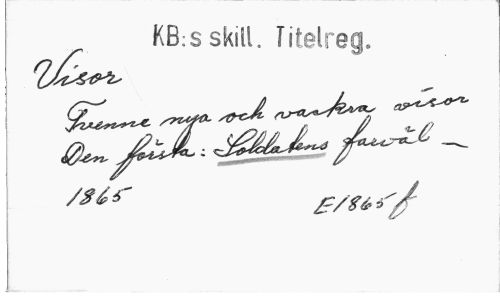 KB:s skill. Titelreg.
Visor
Tvenne nya och vackra visor
Den första: Soldatens farväl —
1865
E1865f